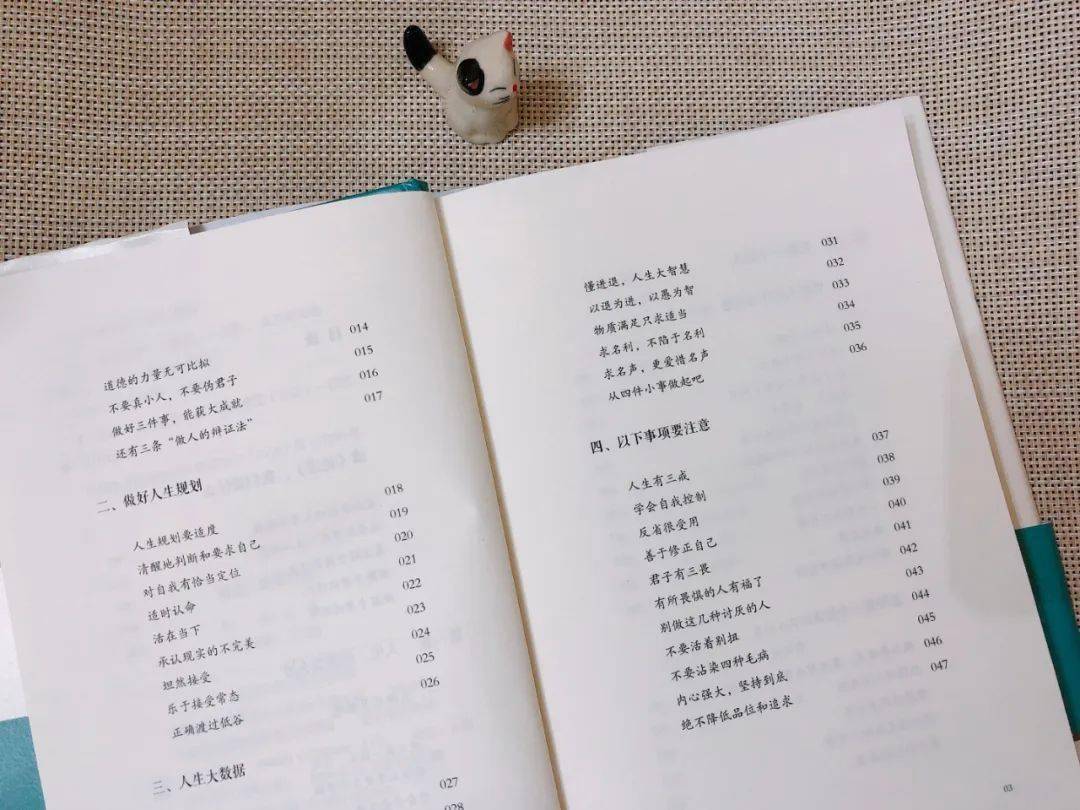 道德的力量无可比拟 014
不要真小人，不要伪君子 015
做好三件事，能获大成就 016
还有三条“做人的辩证法” 017
二、做好人生规划
人生规划要适度 018
清醒地判断和要求自己 019
对自我有恰当定位 020
适时认命 021
活在当下 022
承认现实的不完美 023
坦然接受 024
乐于接受常态 025
正确渡过低谷 026
三、人生大数据
027
028
懂进退，人生大智慧 031
以退为进，以愚为智 032
物质满足只求适当 033
求名利，不陷于名利 034
求名声，更爱惜名声 035
从四件小事做起吧 036
四、以下事项要注意
人生有三戒 037
学会自我控制 038
反省很受用 039
善于修正自己 040
君子有三畏 041
有所畏惧的人有福了 042
别做这几种讨厌的人 043
不要活着别扭 044
不要沾染四种毛病 045
内心强大，坚持到底 046
绝不降低品位和追求 047
03